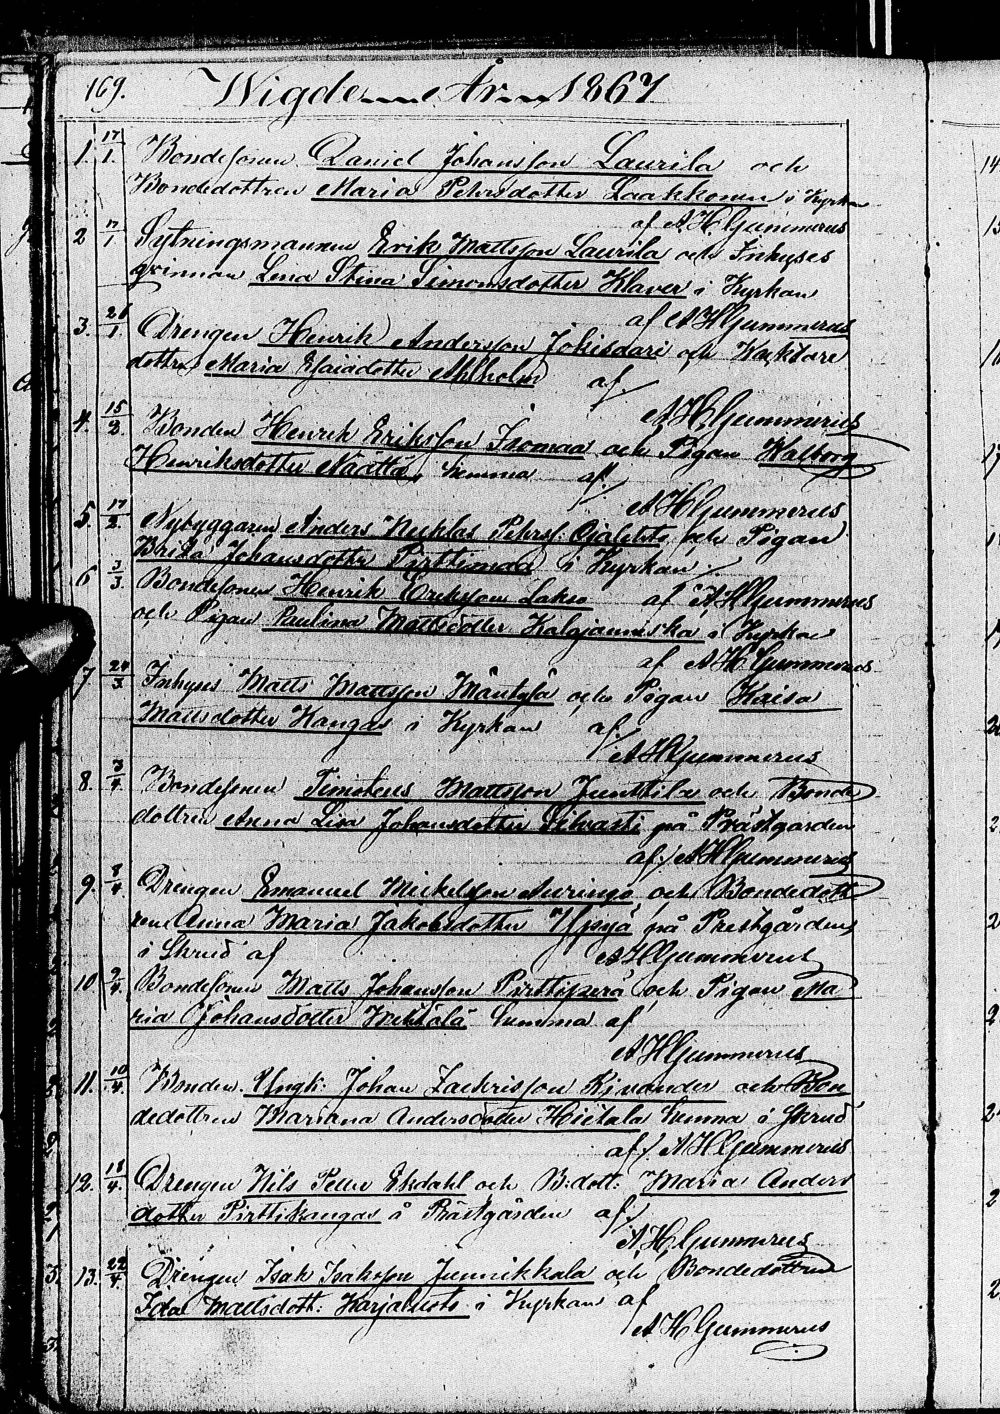 169. Wigde År 1867
1. 17/1. Bondesonen Daniel Johansson Laurila och
Bondedottren Maria Petersdotter Laakkonen i Kyrkan
af AHGummerus
2 17/1 Sytningsmannen Erik Mattsson Laurila och Inhyses
qvinnan Lena Stina Simonsdotter Klaver i Kyrkan
af AHGummerus
3. 26/1. Drengen Henrik Andersson Jokisaari och Wacktare
dottren Maria Esaiædotter Ahlholm af/
AHGummerus
4. 15/2. Bonden Henrik Eriksson Isomaa och Pigan Walborg
Henriksdotter Näättä, hemma af/
AHGummerus
5. 17/2. Nybyggaren Anders Nicklas Peterss: Ojalehto och Pigan
Brita Johansdotter Pirttimaa i Kyrkan./
6 3/3. Bondesonen Henrik Eriksson Lakso af AHGummerus
och Pigan Paulina Mattsdotter Kalajanniska i Kyrkan
af AHGummerus
7 24/3 Inhyses Matts Mattsson Mäntylä och Pigan Kaisa
Mattsdotter Kangas i Kyrkan af/
AHGummerus
8. 3/4. Bondesonen Timoteus Mattsson Junttila och Bonde
dottren Anna Lisa Johansdotter på Prästgården
af/ AHGummerus
9. 8/4. Drengen Emanuel Mickelsson och Bondedott
ren Anna Maria Jakobsdotter Ypyä på Prestgården
i Skrud af AHGummerus
10 9/4. Bondesonen Matts Johansson Pirttiperä och Pigan Ma
ria Johansdotter hemma af
AHGummerus
11. 10/4. Bonden. Ungk: Johan Zachrisson och Bon
dedottren Mariana Andersdotter Hietala hemma i Skrud
af/. AHGummerus
12. 18/4. Drengen Nils Petter Ekdahl och B:dott: Maria Anders
dotter Pirttikangas å Prästgården af/
AHGummerus
13. 22/4. Drengen Isak Isaksson Junnikkala och Bondedottren
Ida Mattsdott: Karjalehto i Kyrkan af
AHGummerus